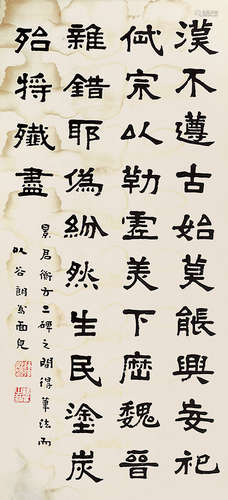 漠不遵古始莫能興妄祀
代宗以勒虛美下歷魏晉
雜錯耶偽紛然生民塗炭
殆將殲盡
景君衡方二碑之間得筆法而
以谷朗為面皃